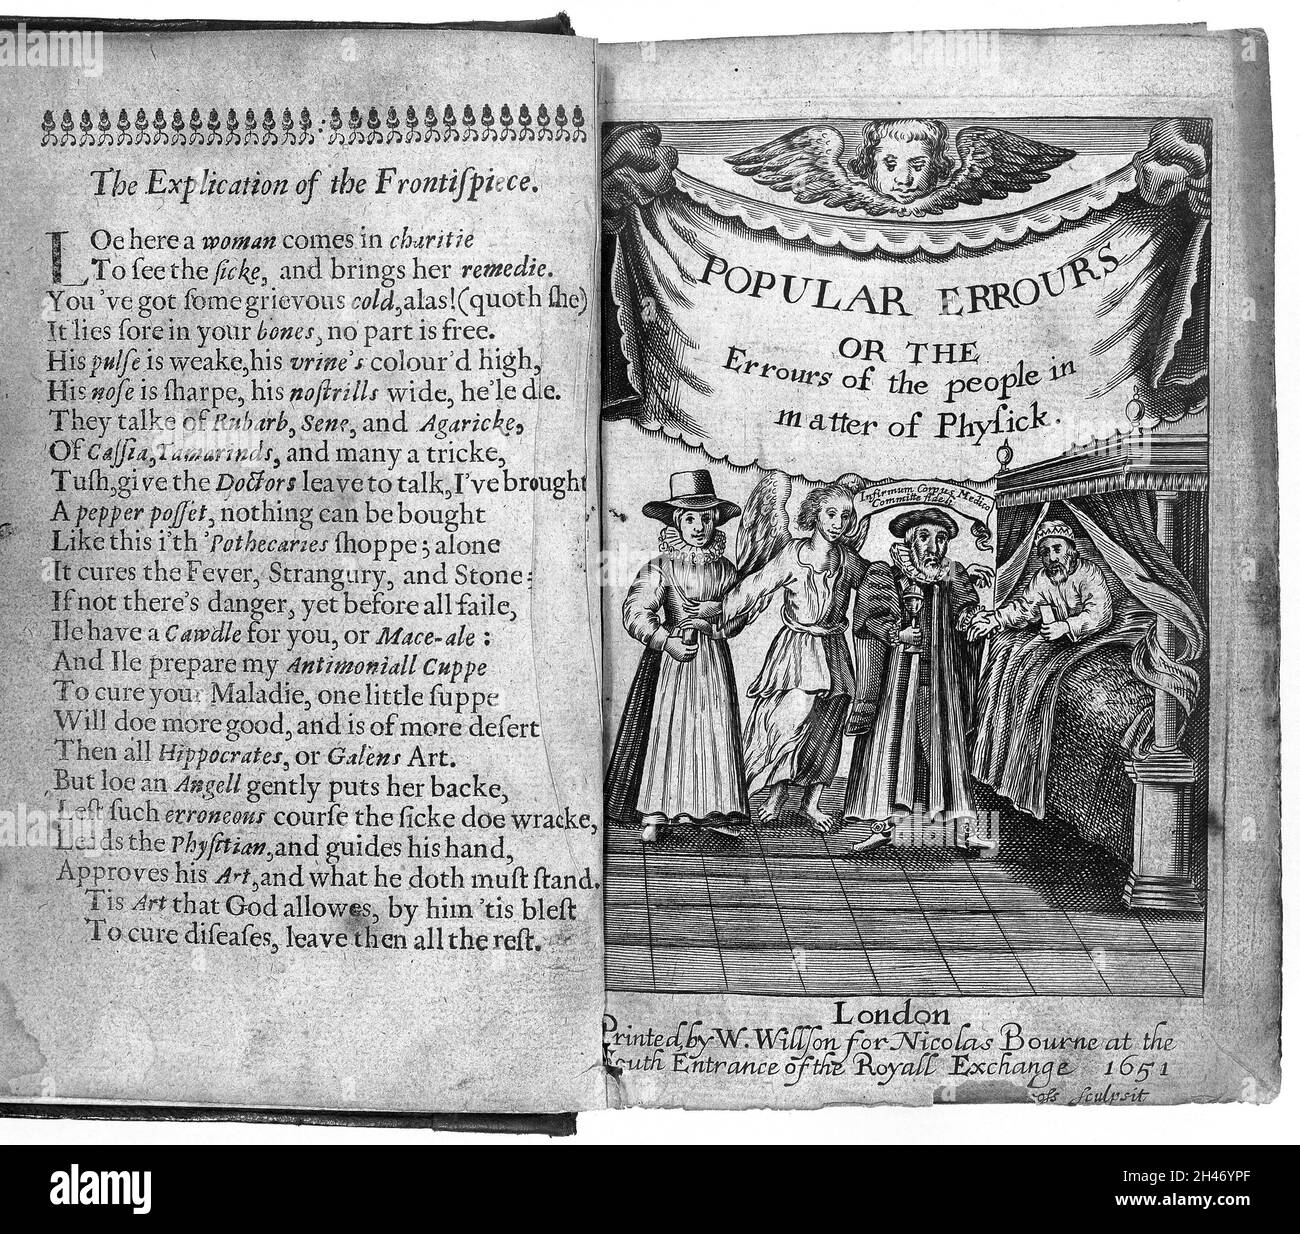 The Explication of the Frontiſpiece.
LOe here a woman comes in charitie
To ſee the ſicke, and brings her remedie.
You 've got ſome grievous cold, alas! (quoth ſhe)
It lies ſore in your bones, no part is free.
His pulſe is weake, his vrine's colour'd high,
His noſe is ſharpe, his noſtrills wide, he'le die.
They talke of Rubarb, Sene, and Agaricke,
Of Caſſia, Tamarinds, and many a tricke,
Tuſh, give the Doctors leave to talk, I've brought
A pepper poſſet, nothing can be bought
Like this i'th 'Pothecaries ſhoppe; alone
It cures the Fever, Strangury, and Stone:
If not there's danger, yet before all faile,
Ile have a Cawdle for you, or Mace-ale:
And Ile prepare my Antimoniall Cuppe
To cure your Maladie, one little ſuppe
Will doe more good, and is of more deſert
Then all Hippocrates, or Galens Art.
But loe an Angell gently puts her backe,
Leſt ſuch erroneous courſe the ſicke doe wracke,
Leads the Phyſitian, and guides his hand,
Approves his Art, and what he doth muſt ſtand.
Tis Art that God allowes, by him 'tis bleſt
To cure diſeaſes, leave then all the reſt.
POPULAR ERROURS
OR THE
Errours of the people in
matter of Phyſick.
Infirmum Corpus Medico
Committe fideli
London
Printed, by W. Willſon for Nicolas Bourne at the
South Entrance of the Royall Exchange 1651
sculpsit
alamy
Image ID: 2H46YPF
www.alamy.com